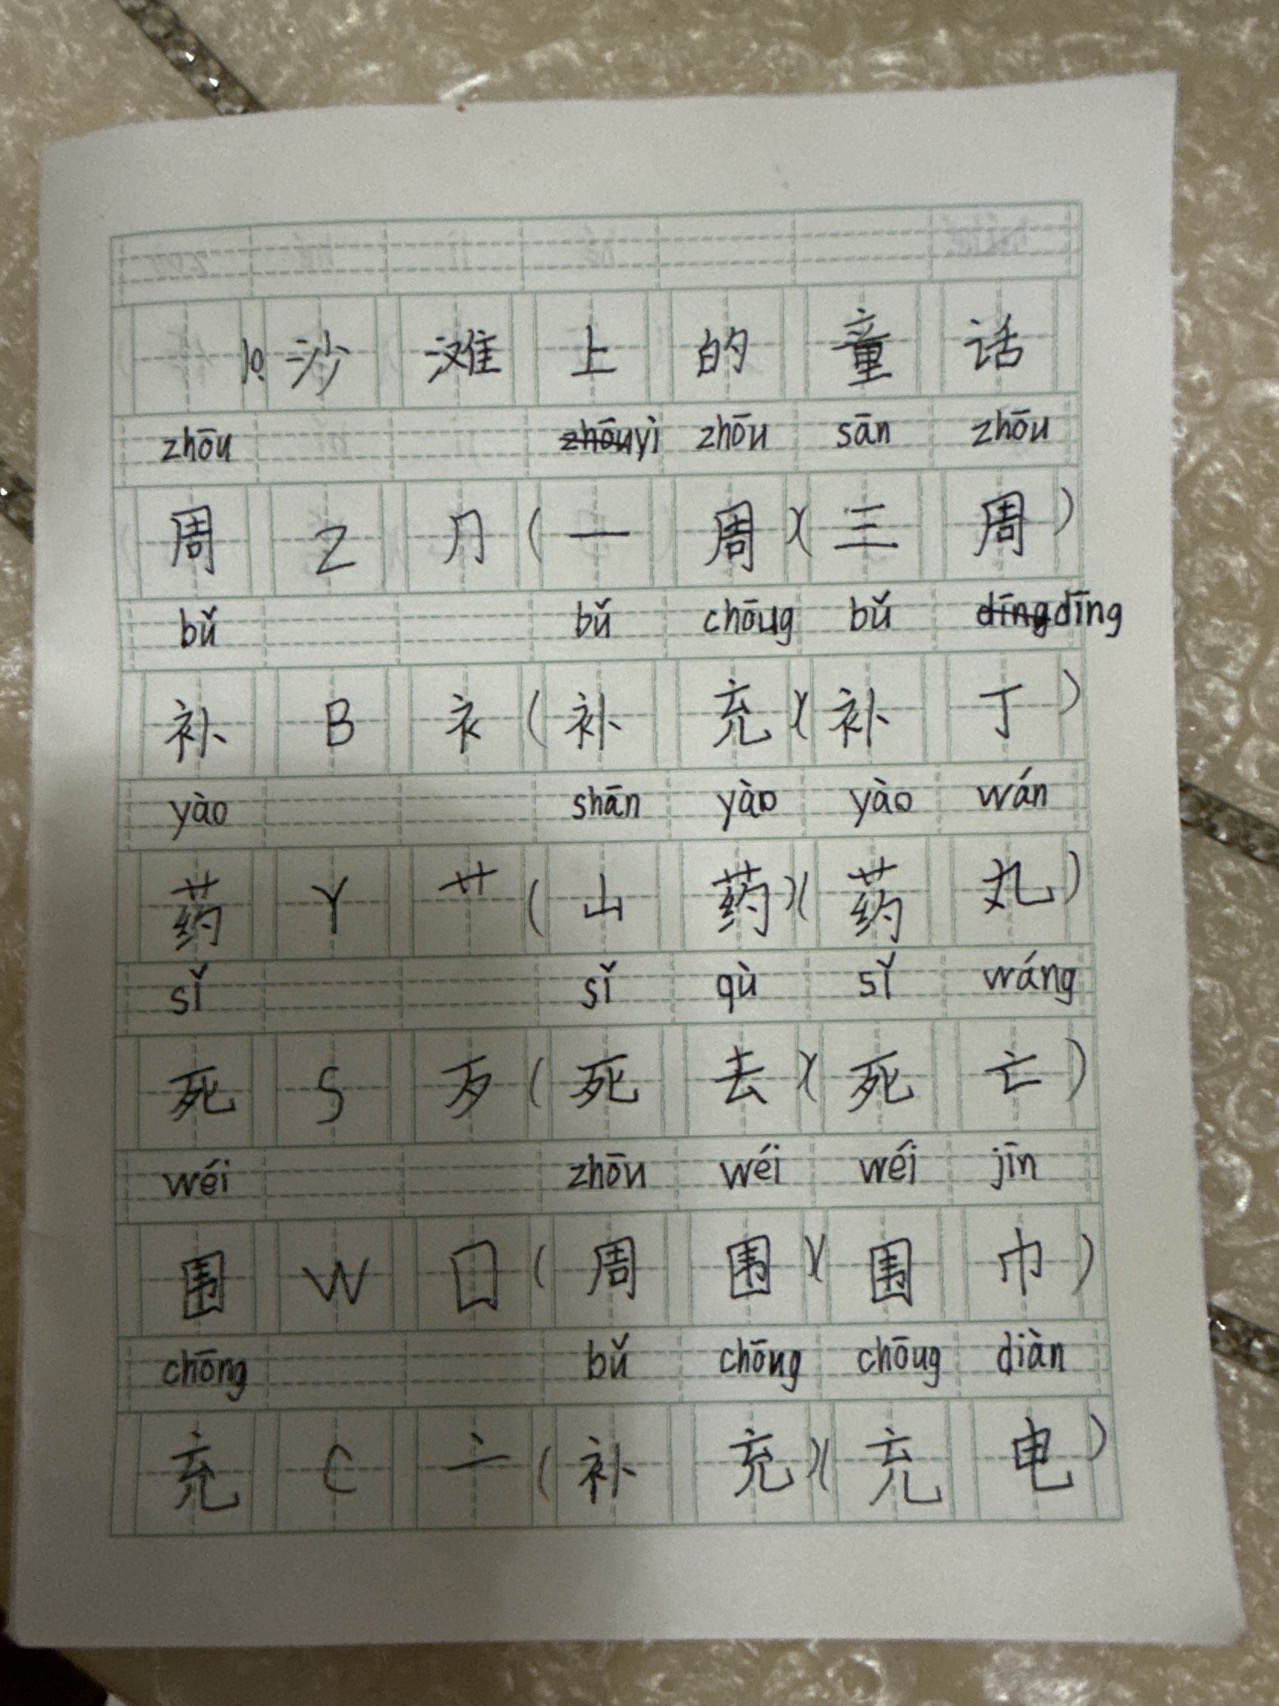 10.沙滩上的童话
zhōu zhōuyì zhōu sān zhōu
周 Z 冂 (一周)(三周)
bǔ bǔ chōng bǔ dīngdīng
补 B 衤 (补充)(补丁)
yào shān yào yào wán
药 Y 艹 (山药)(药丸)
sǐ sǐ qù sǐ wáng
死 S 歹 (死去)(死亡)
wéi zhōu wéi wéi jīn
围 W 囗 (周围)(围巾)
chōng bǔ chōng chōng diàn
充 C 亠 (补充)(充电)